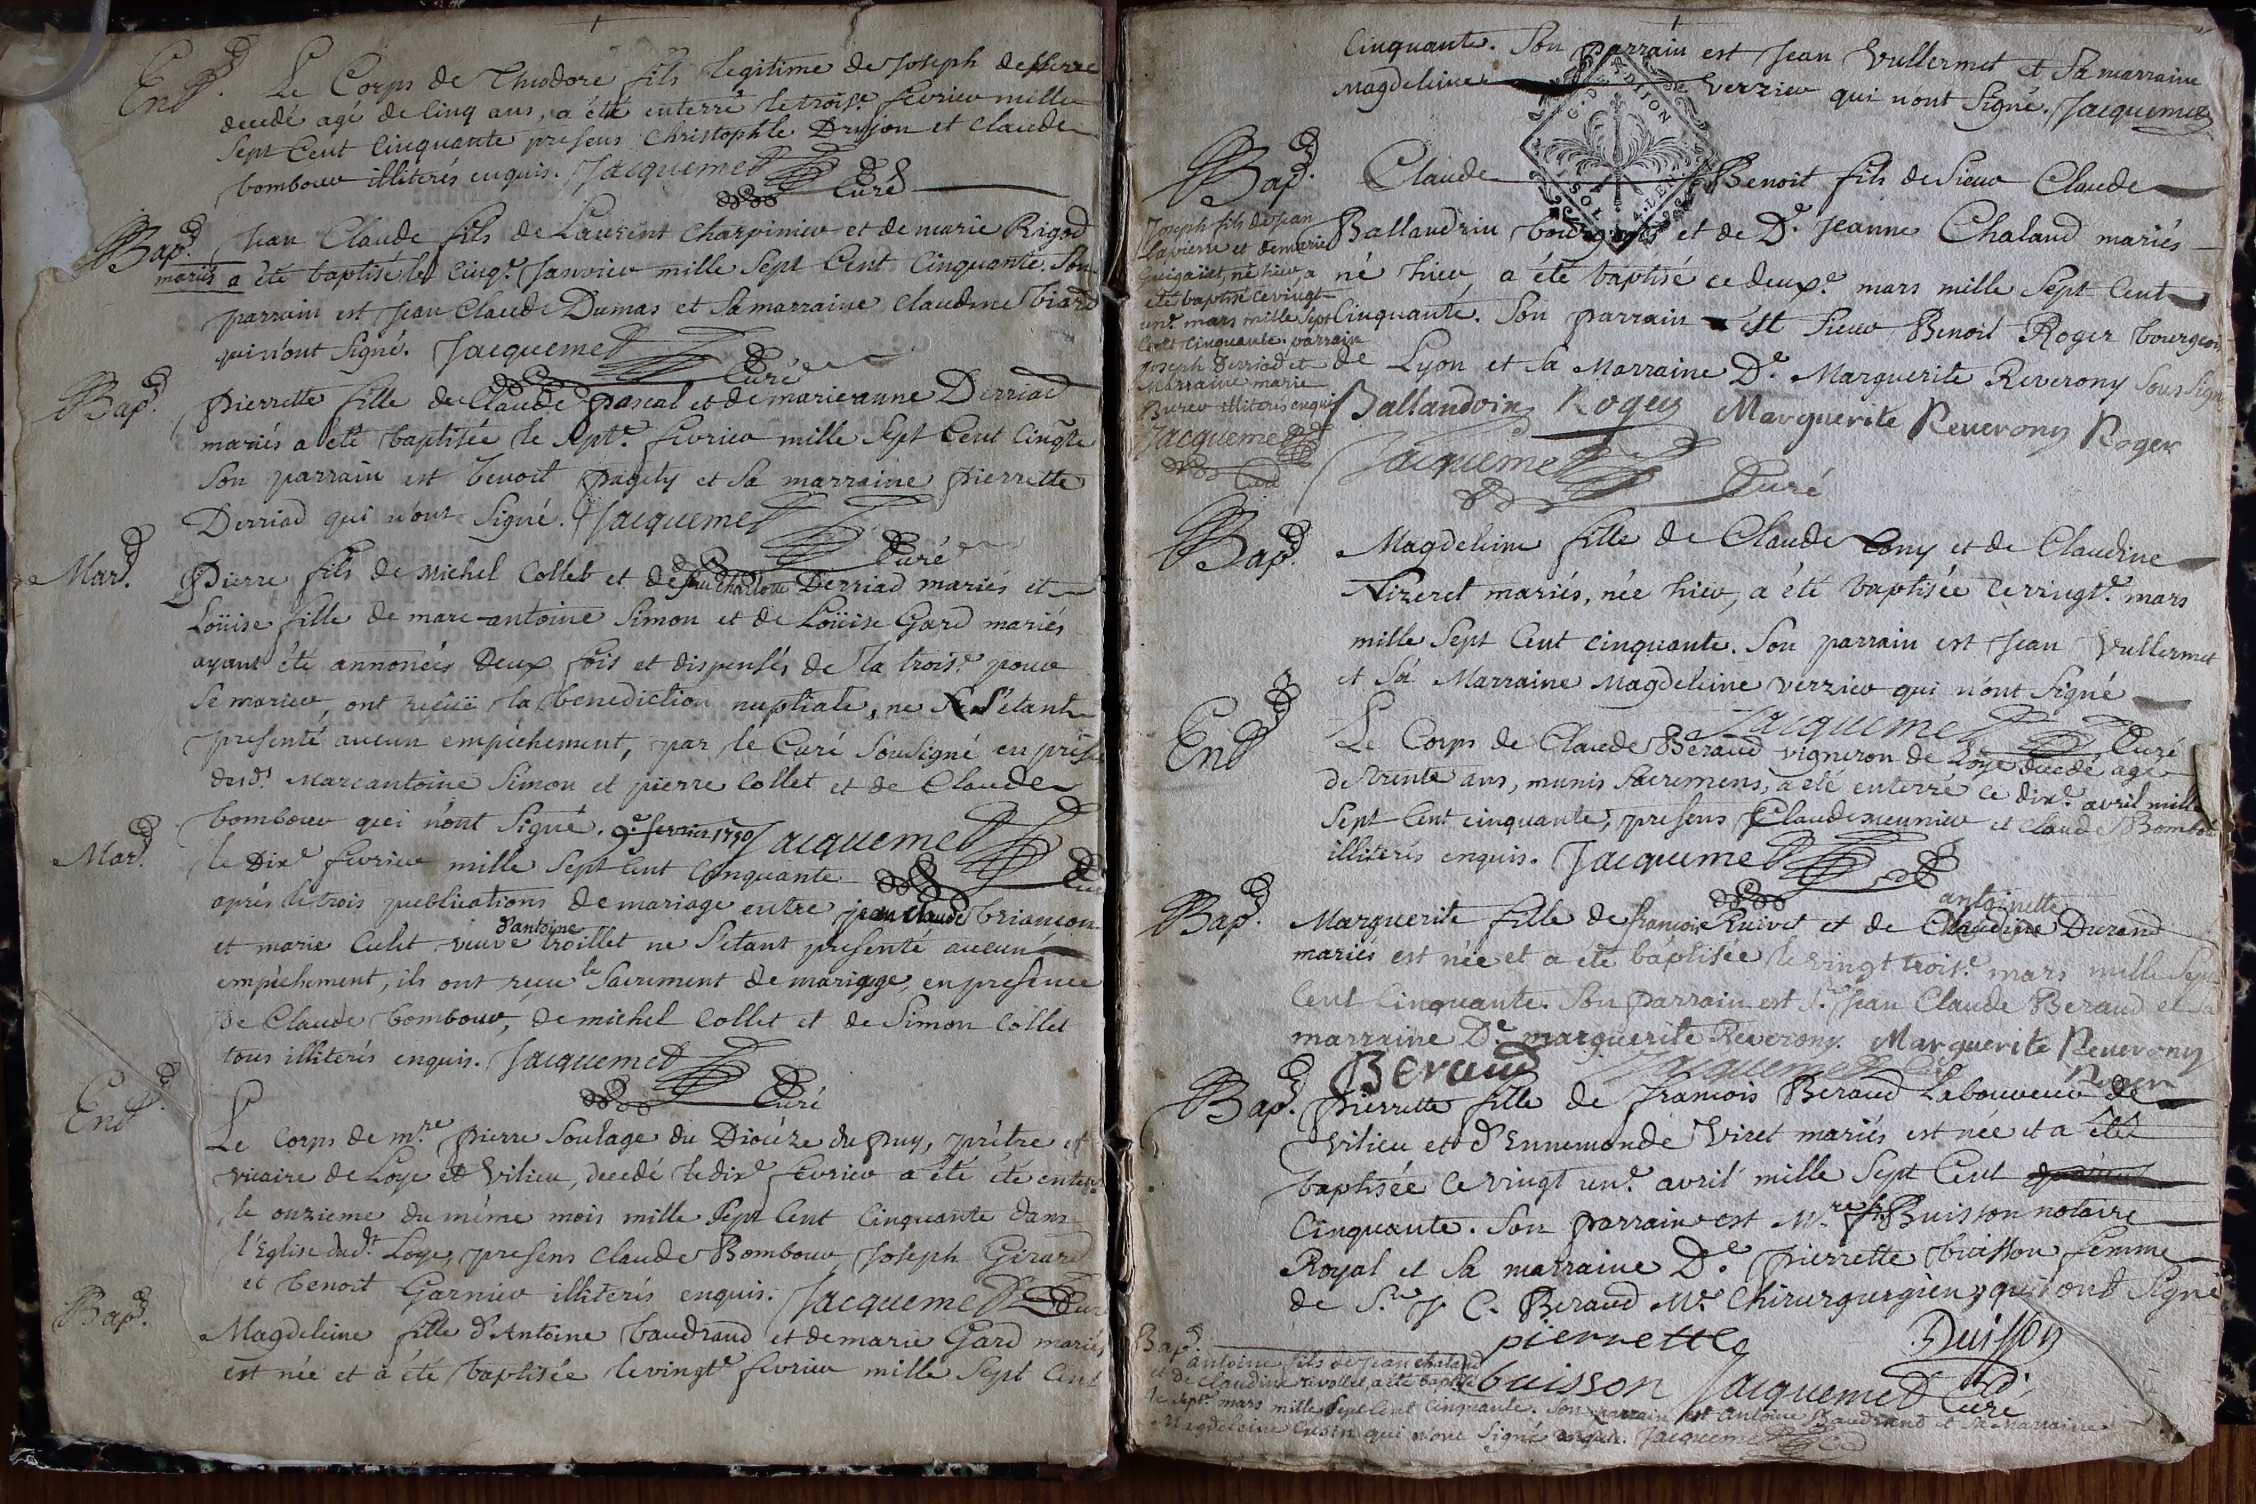 Ent.
Le Corps de Theodore fils legitime de Joseph
decedé agé de Cinq ans, a été enterré le trois.e fevrier mille
Sept Cent Cinquante presens Christophle Drujon et Claude
bombour illiterés enquis. Jacquemet
Curé
Bap.
Jean Claude fils de Laurent Charvinier et de marie Rigod
mariés a été baptisé le Cinq.e Janvier mille Sept Cent Cinquante. Son
parrain est Jean Claude Dumas et Sa marraine Claudine
qui n'ont Signé. Jacquemet
Curé
Bap.
pierrette fille de Claude pascal et de marie anne Derriad
mariés a été baptisée le Sept.e fevrier mille Sept Cent Cinq.te
Son parrain est benoit et Sa marraine pierrette
Derriad qui n'ont Signé. Jacquemet
Curé
Mar.
Pierre fils de Michel Collet et de feu Charlotte Derriad mariés et
Loüise fille de marc-antoine Simon et de Loüise Gard mariés
ayant été annoncés Deux fois et dispensés de la trois.e pour
Se marier, ont recüe la benediction nuptiale, ne S'étant
presenté aucun empéchement, par le Curé Sousigné en
dud.t Marcantoine Simon et pierre Collet et de Claude
bombour qui n'ont Signé. 9.e fevrier 1750 Jacquemet
Mar.
le Dix.e fevrier mille Sept Cent Cinquante
Curé
aprés le trois publications de mariage entre jean claude briancon
d'antoine
et marie Culet veuve troillet ne S'etant presenté aucun
empéchement, ils ont reçue le Sacrement de mariage, en presence
de Claude bombour, de michel Collet et de Simon Collet
tous illiterés enquis. Jacquemet
Curé
Ent.
Le Corps de m.re pierre Soulage du Diocéze du puy, prétre et
vicaire de Loye et Vilieu, decedé le dix.e fevrier a été été
le onzieme du méme mois mille Sept Cent Cinquante dans
l'Eglise dud.t Loye, presens Claude Bombour Joseph Girard
et benoit Garnier illiterés enquis. Jacquemet Curé
Bap.
Magdeleine fille d'Antoine baudrand et de marie Gard mariés
est née et a été baptisée le vingt.e fevrier mille Sept Cent
Cinquante. Son parrain est Jean Vullermet et Sa marraine
Magdeleine verzier qui n'ont Signé. Jacquemet
G. DE DIJON
SOL. 4. DE.
Bap.
Claude Benoit fils de Sieur Claude
Ballandrin bourgeois et de D.e Jeanne Chaland mariés
né hier, a été baptisé ce deux.e mars mille Sept Cent
Cinquante. Son parrain est Sieur Benoit Roger bourgeois
de Lyon et Sa Marraine D.e Marguerite Reverony
Ballandrin Roger Marguerite Reverony Roger
Jacquemet
Curé
Joseph fils de Jean
Lapierre et de marie
né hier, a
été baptisé ce vingt
un.e mars mille Sept
Cent Cinquante. parrain
Joseph Derriad et
Marraine marie
Burer illiterés enquis
Jacquemet
Curé
Bap.
Magdeleine fille de Claude Cony et de Claudine
Nizeret mariés, née hier, a été baptisée Ce vingt.e mars
mille Sept Cent Cinquante. Son parrain est Jean Vullermet
et Sa Marraine Magdeleine verzier qui n'ont Signé
Jacquemet
Curé
Ent.
Le Corps de Claude Béraud vigneron de Loye decedé agé
de trente ans, munis Sacremens, a été enterré ce dix.e avril mille
Sept Cent cinquante, presens Claude meunier et Claude Bombour
illiterés enquis. Jacquemet
Bap.
antoinette
Marguerite fille de francois Ruivet et de Claudine Durand
mariés est née et a été baptisée le vingt trois.e mars mille Sept
Cent Cinquante. Son parrain est S.r Jean Claude Beraud et Sa
marraine D.e marguerite Reverony. Marguerite Reverony
Beraud Jacquemet Roger
Bap.
pierrette fille de francois Beraud Laboureur de
Vilieu et d'Ennemonde Viret mariés est née et a été
baptisée Ce vingt un.e avril mille Sept Cent
Cinquante. Son parrain est M.re Buisson notaire
Royal et Sa marraine D.e pierrette buisson femme
de S.r J C. Beraud M.e Chirurgurgien, qui ont Signé
pierrette Buisson
buisson Jacquemet Curé
Bap.
antoine fils de Jean chaland
et de Claudine revollet, a été baptisé
le Sept.e mars mille Sept Cent Cinquante. Son parrain est Antoine Baudrand et Sa Marraine
Magdeleine qui n'ont Signé enquis. Jacquemet